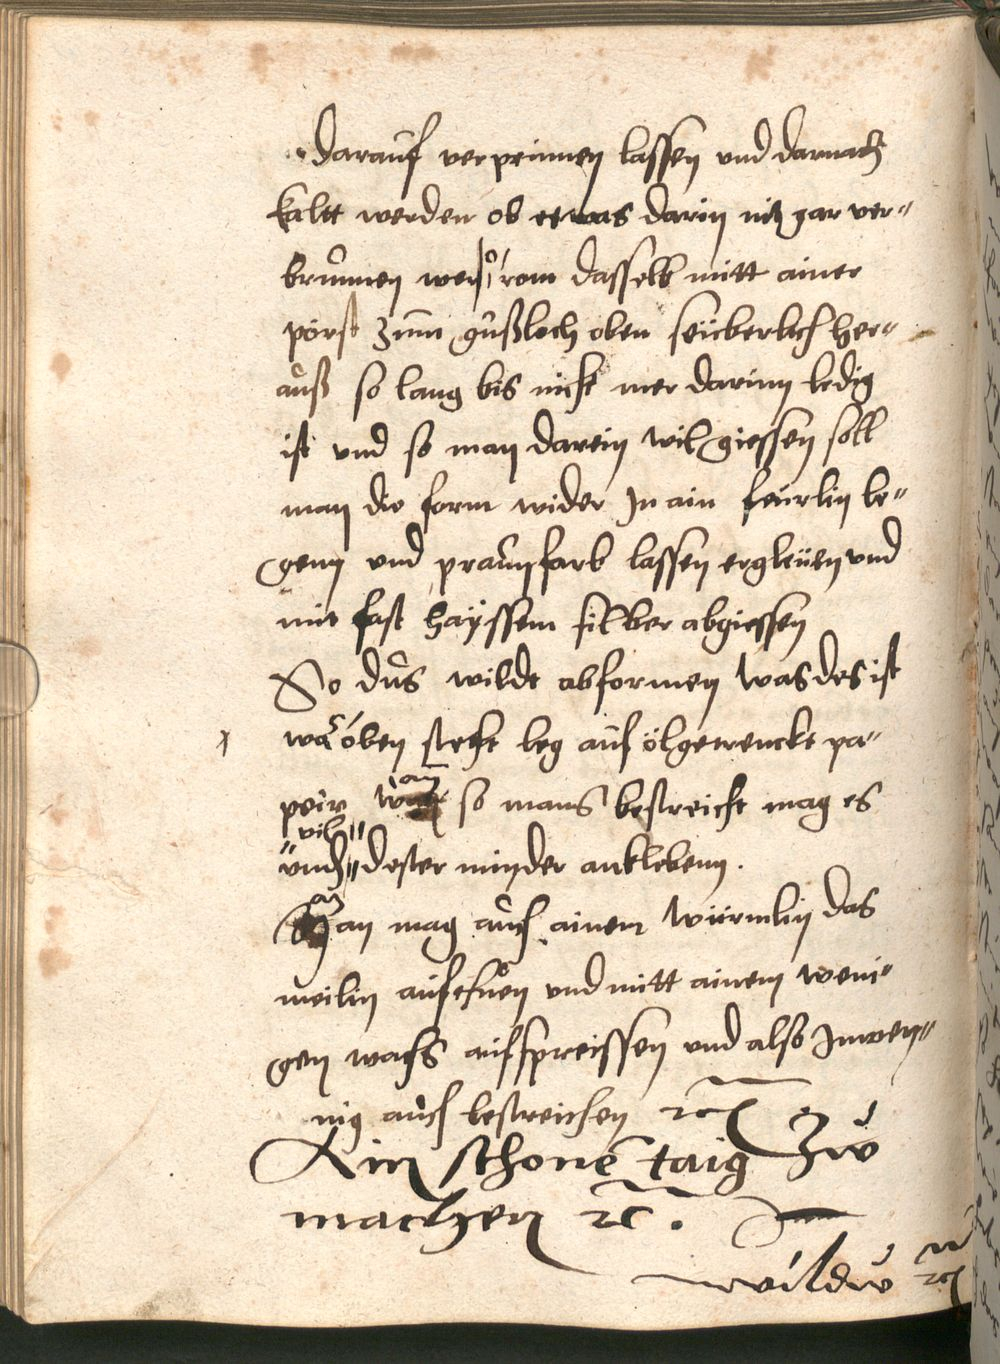 darauf verprinnen lassen vnd darnach
kaltt werden ob etwas darin nit gar ver-
brunnen wer so rom dasselb mitt ainer
porst zum gußloch oben seüberlich her-
auß so lang bis nicht mer darinn ledig
ist vnd so man darein wil giessen soll
man die form wider Jn ain feürlin le-
genn vnd praunfarb lassen ergleüen vnd
mit fast haÿssem silber abgiessen
So dus wildt abformen was des ist
was oben stecht leg auf ölgetrenckt pa-
peir wan so mans bestreicht mag es
vil
vmb dester minder anklebenn.
Man mag auch ainem würmlin das
meilin aufthuen vnd mitt ainem weni-
gen wachs aufspreissen vnd also Jnwen-
nig auch bestreichen ꝛc
Ain schonē taig Zů
machen ꝛc.
wildů